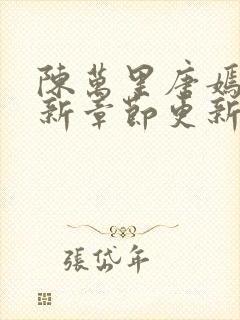 陳萬里唐嫣
新章節更新
張岱年